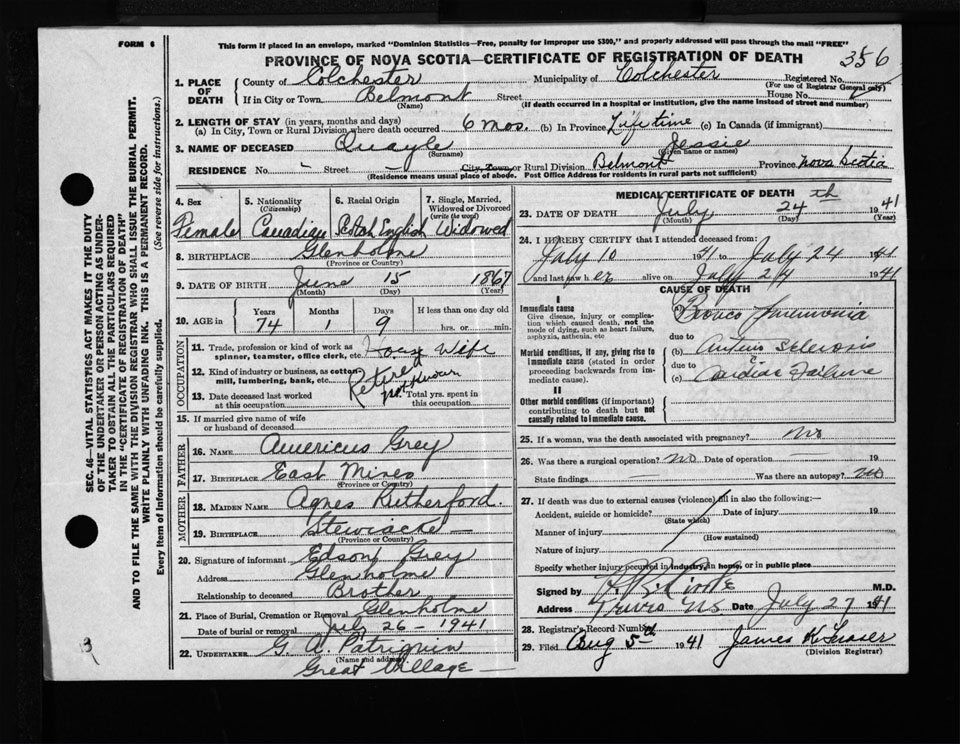 FORM 6
This form if placed in an envelope, marked "Dominion Statistics—Free, penalty for improper use $300," and properly addressed will pass through the mail "FREE"
PROVINCE OF NOVA SCOTIA—CERTIFICATE OF REGISTRATION OF DEATH 356
1. PLACE OF DEATH
County of Colchester Municipality of Colchester Registered No.
(For use of Registrar General only)
If in City or Town Belmont Street House No.
(Name) (If death occurred in a hospital or institution, give the name instead of street and number)
2. LENGTH OF STAY (in years, months and days)
(a) In City, Town or Rural Division where death occurred 6 mos. (b) In Province Life time (c) In Canada (if immigrant)
3. NAME OF DECEASED Quayle Jessie
(Surname) (Given name or names)
RESIDENCE No. - Street - City, Town, or Rural Division Belmont Province Nova Scotia
(Residence means usual place of abode. Post Office Address for residents in rural parts not sufficient)
4. Sex
Female
5. Nationality
(Citizenship)
Canadian
6. Racial Origin
Scotch English
7. Single, Married, Widowed or Divorced
(write the word)
Widowed
8. BIRTHPLACE Glenholme
(Province or Country)
9. DATE OF BIRTH June 15 1867
(Month) (Day) (Year)
10. AGE in Years Months Days If less than one day old
74 1 9 hrs. or min.
OCCUPATION
11. Trade, profession or kind of work as
spinner, teamster, office clerk, etc. House Wife
12. Kind of industry or business, as cotton-
mill, lumbering, bank, etc. Retired
13. Date deceased last worked at this occupation not known 14. Total yrs. spent in this occupation
15. If married give name of wife
or husband of deceased
FATHER
16. NAME Americus Grey
17. BIRTHPLACE East Mines
(Province or Country)
MOTHER
18. MAIDEN NAME Agnes Rutherford.
19. BIRTHPLACE Stewiacke
(Province or Country)
20. Signature of informant Edson Grey
Address Glenholme
Relationship to deceased Brother
21. Place of Burial, Cremation or Removal Glenholme
Date of burial or removal July 26 - 1941
22. UNDERTAKER G. A. Patriquin
(Name and address)
Great Village
MEDICAL CERTIFICATE OF DEATH
23. DATE OF DEATH July 24th 1941
(Month) (Day) (Year)
24. I HEREBY CERTIFY that I attended deceased from:
July 10 1941 to July 24 1941
and last saw her alive on July 24 1941
CAUSE OF DEATH
I
Immediate cause
Give disease, injury or complication which caused death, not the mode of dying, such as heart failure, asphyxia, asthenia, etc
(a) Bronco Pneumonia
due to
Morbid conditions, if any, giving rise to immediate cause (stated in order proceeding backwards from immediate cause).
(b) Arterio Sclerosis
due to
(c) Cardiac Failure
II
Other morbid conditions (if important) contributing to death but not causally related to immediate cause.
25. If a woman, was the death associated with pregnancy? No
26. Was there a surgical operation? No Date of operation 19
State findings Was there an autopsy? No
27. If death was due to external causes (violence) fill in also the following:—
Accident, suicide or homicide? Date of injury 19
(State which)
Manner of injury
(How sustained)
Nature of injury
Specify whether injury occurred in industry, in home, or in public place
Signed by M.D.
Address Truro NS Date July 27 1941
28. Registrar's Record Number
29. Filed Aug 5th 1941 James Fraser
(Division Registrar)
SEC. 46—VITAL STATISTICS ACT MAKES IT THE DUTY
OF THE UNDERTAKER OR PERSON ACTING AS UNDER-
TAKER TO OBTAIN ALL THE PARTICULARS REQUIRED
IN THE "CERTIFICATE OF REGISTRATION OF DEATH"
AND TO FILE THE SAME WITH THE DIVISION REGISTRAR WHO SHALL ISSUE THE BURIAL PERMIT.
WRITE PLAINLY WITH UNFADING INK. THIS IS A PERMANENT RECORD.
Every item of Information should be carefully supplied. (See reverse side for instructions).
3